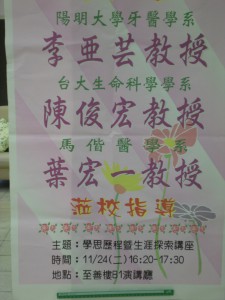 陽明大學牙醫學系
李亞芸教授
台大生命科學學系
陳俊宏教授
馬偕醫學系
葉宏一教授
蒞校指導
主題：學思歷程暨生涯探索講座
時間：11/24(二)16:20-17:30
地點：至善樓B1演講廳